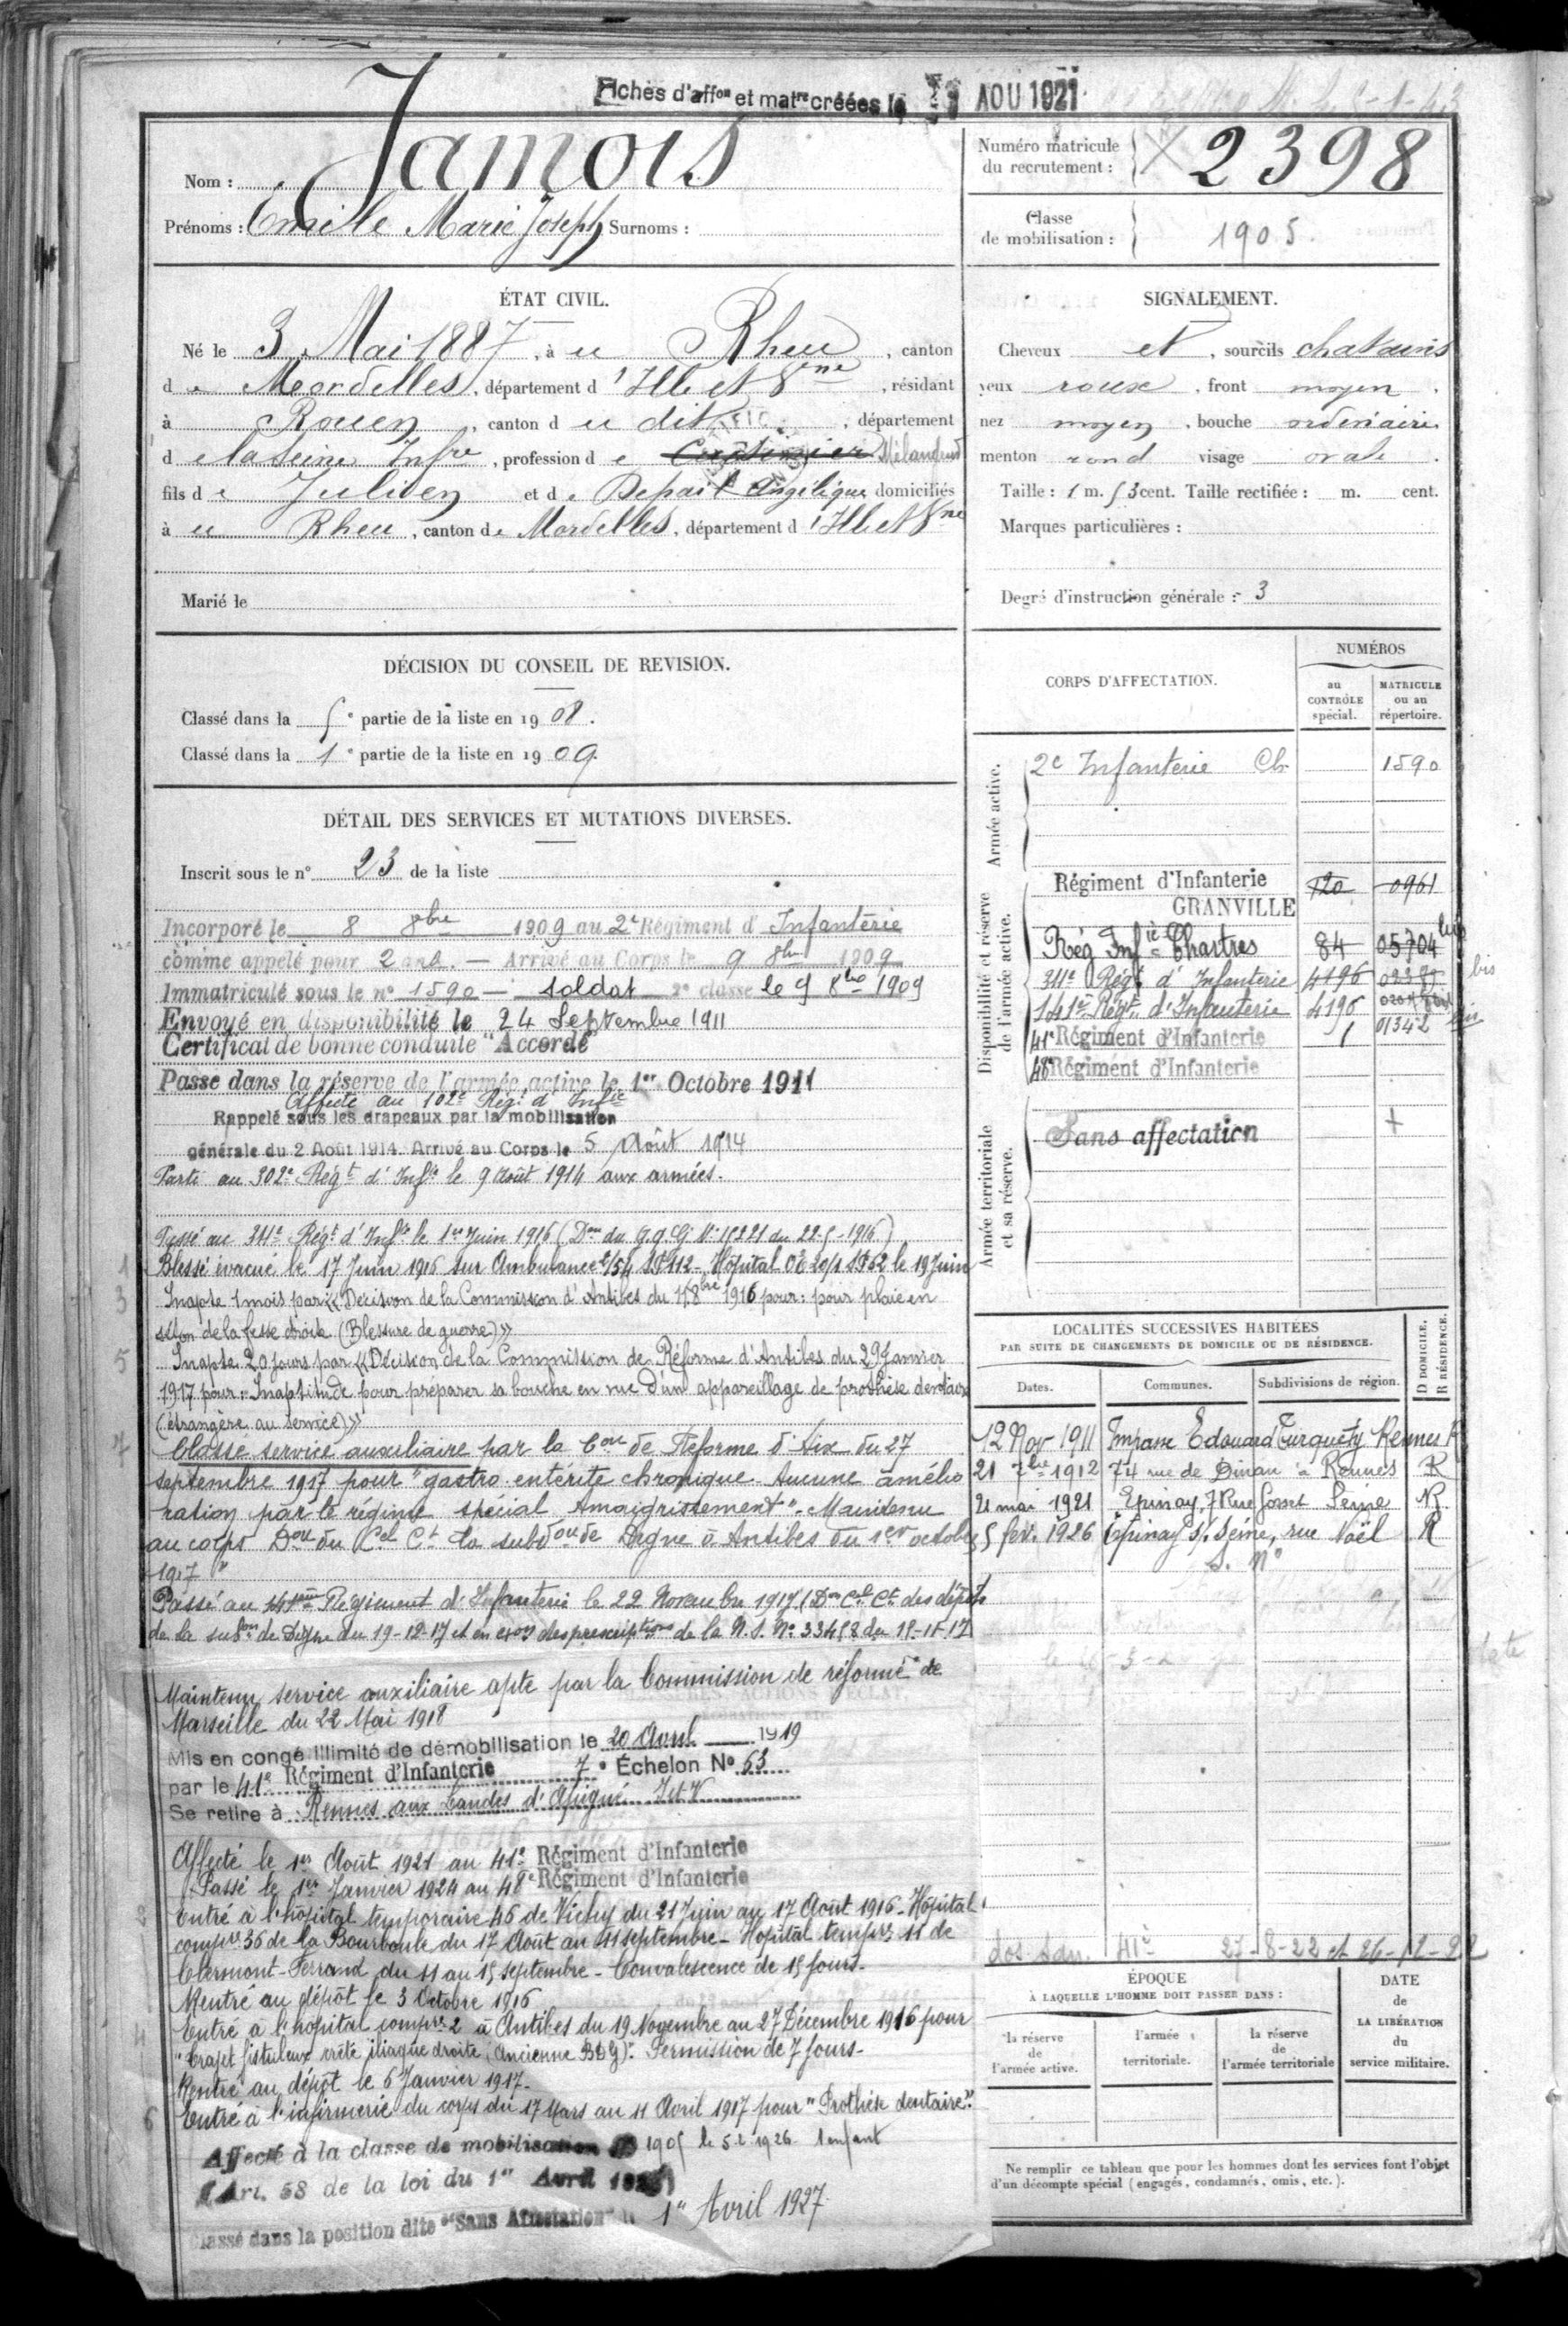 Fiches d'affon et matre créées le AOU 1921
Nom : Jamois
Prénoms : Emile Marie Joseph Surnoms :
Numéro matricule
du recrutement :
2398
Classe
de mobilisation :
1905.
ÉTAT CIVIL.
Né le 3 Mai 1887, à u Rheu, canton
de Mordelles, département d'Ille et Vne, résidant
à Rouen, canton du dit, département
de la Seine Infre, profession de
fils de Julien et de Angélique domiciliés
à u Rheu, canton de Mordelles, département d'Ille et Vne
Marié le
SIGNALEMENT.
Cheveux et, sourcils chatains
yeux roux, front moyen.
nez moyen, bouche ordinaire.
menton rond visage ovale.
Taille : 1 m. 53 cent. Taille rectifiée : m. cent.
Marques particulières :
Degré d'instruction générale : 3
DÉCISION DU CONSEIL DE REVISION.
Classé dans la 5e partie de la liste en 1908.
Classé dans la 1e partie de la liste en 1909.
DÉTAIL DES SERVICES ET MUTATIONS DIVERSES.
Inscrit sous le n° 23 de la liste
Incorporé le 8 8bre 1909 au 2e Régiment d'Infanterie
comme appelé pour 2 ans. — Arrivé au Corps le 9 8bre 1909
Immatriculé sous le n° 1590 — soldat 2e classe le 9 8bre 1909
Envoyé en disponibilité le 24 Septembre 1911
Certificat de bonne conduite "Accordé"
Passe dans la réserve de l'armée active le 1er Octobre 1911
Affecté au 102e Régt d'Infie
Rappelé sous les drapeaux par la mobilisation
générale du 2 Août 1914. Arrivé au Corps le 5 Août 1914
Parti au 302e Régt d'Infie le 9 Août 1914 aux armées.
Passé au 311e Régt d'Infie le 1er Juin 1916 (Don du G.Q.G. N° 15221 du 22-5-1916)
1 Blessé évacué le 17 Juin 1916 sur Ambulance 2/54 SP 112 - Hôpital OE 20/1 SP 62 le 19 Juin
3 Inapte 1 mois par «Décision de la Commission d'Antibes du 8bre 1916 pour : pour plaie en
séton de la fesse droite (Blessure de guerre)»
5 Inapte 20 jours par «Décision de la Commission de Réforme d'Antibes du 29 Janvier
1917 pour : Inaptitude pour préparer sa bouche en vue d'un appareillage de prothèse dentaire
(étrangère au service)»
7 Classé service auxiliaire par la Con de Réforme d'Aix du 27
septembre 1917 pour "gastro entérite chronique. Aucune amélio
ration par le régime spécial Amaigrissement". Maintenu
au corps Don du Cel Ct la subdon de Digne à Antibes du 1er octobre
1917"
Passé au 141ème Régiment d'Infanterie le 22 Novembre 1917 (Don Cel Ct des dépôts
de la subon de Digne du 19-12-17 et en exon des prescriptions de la N. S. N° 33458 du 15-11-17
Maintenu service auxiliaire apte par la Commission de réforme de
Marseille du 22 Mai 1918
Mis en congé illimité de démobilisation le 20 Avril 1919
par le 41e Régiment d'Infanterie 7e Échelon N° 53
Se retire à Rennes aux Landes d'Apigné I et V
Affecté le 1er Août 1921 au 41e Régiment d'Infanterie
Passé le 1er Janvier 1924 au 48e Régiment d'Infanterie
2 Entré à l'hôpital temporaire 46 de Vichy du 21 Juin au 17 Août 1916 - Hôpital
compre 36 de la Bourboule du 17 Août au 11 septembre - Hôpital tempre 11 de
Clermont-Ferrand du 11 au 15 septembre - Convalescence de 15 jours -
Rentré au dépôt le 3 Octobre 1916
4 Entré à l'hôpital compre 2 à Antibes du 19 Novembre au 27 Décembre 1916 pour
"Trajet fistuleux crête iliaque droite (Ancienne BDG)". Permission de 7 jours -
Rentré au dépôt le 6 Janvier 1917 -
6 Entré à l'infirmerie du corps du 17 Mars au 11 Avril 1917 pour "Prothèse dentaire".
Affecté à la classe de mobilisation 1905 le 5.2.1926 1 enfant
(Art. 58 de la loi du 1er Avril
Classé dans la position dite "Sans Affectation" 1er Avril 1927
CORPS D'AFFECTATION.
NUMÉROS
au
CONTRÔLE
spécial.
MATRICULE
ou au
répertoire.
Armée active.
2e Infanterie Ch 1590
Disponibilité et réserve
de l'armée active.
Régiment d'Infanterie 120 0961
GRANVILLE
Rég Infie Chartres 84 05704 bis
311e Régt d'Infanterie 4196 bis
141e Régt d'Infanterie 4196
41e Régiment d'Infanterie 1 01342
48e Régiment d'Infanterie
Armée territoriale
et sa réserve.
Sans affectation
LOCALITÉS SUCCESSIVES HABITÉES
PAR SUITE DE CHANGEMENTS DE DOMICILE OU DE RÉSIDENCE.
D DOMICILE.
R RÉSIDENCE.
Dates. Communes. Subdivisions de région.
12 Nov 1911 Impasse Edouard Turquety Rennes R
21 7bre 1912 74 rue de Dinan à Rennes R
21 mai 1921 Epinay, 7 Rue Seine R
5 fév. 1926 Epinay s/ Seine, rue Noël R
s. n°
dos. Adn. 41e 27-8-22 et
ÉPOQUE
À LAQUELLE L'HOMME DOIT PASSER DANS :
la réserve
de
l'armée active.
l'armée
territoriale.
la réserve
de
l'armée territoriale
DATE
de
LA LIBÉRATION
du
service militaire.
Ne remplir ce tableau que pour les hommes dont les services font l'objet
d'un décompte spécial (engagés, condamnés, omis, etc.).